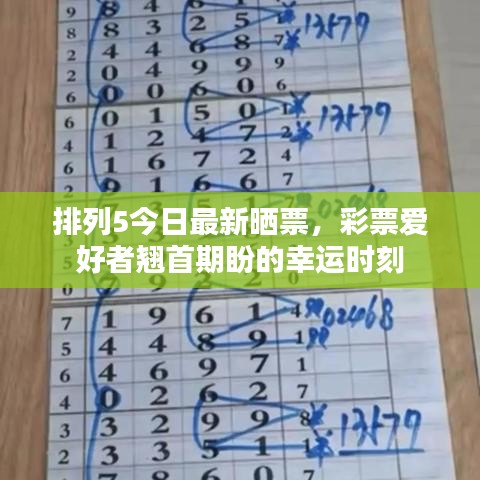 9 8 4
8 8 3 2 5 1 13579
2 4 4 6 8 7
2 0 4 9 9 9
6 0 0 6 0 6
6 0 1 5 0 1 13579
4 1 2 4 7 2
6 1 6 7 2 4
9 1 6 6 7
排列5今日最新晒票，彩票爱
好者翘首期盼的幸运时刻
0 7
7 1 9 6 1 4 02468
5 4 4 8 9 1
6 4 6 9 7 1
4 0 2 6 2 7
3 3 2 9 9 8
2 3 3 5 1 1 13579
7 8 6 0 7